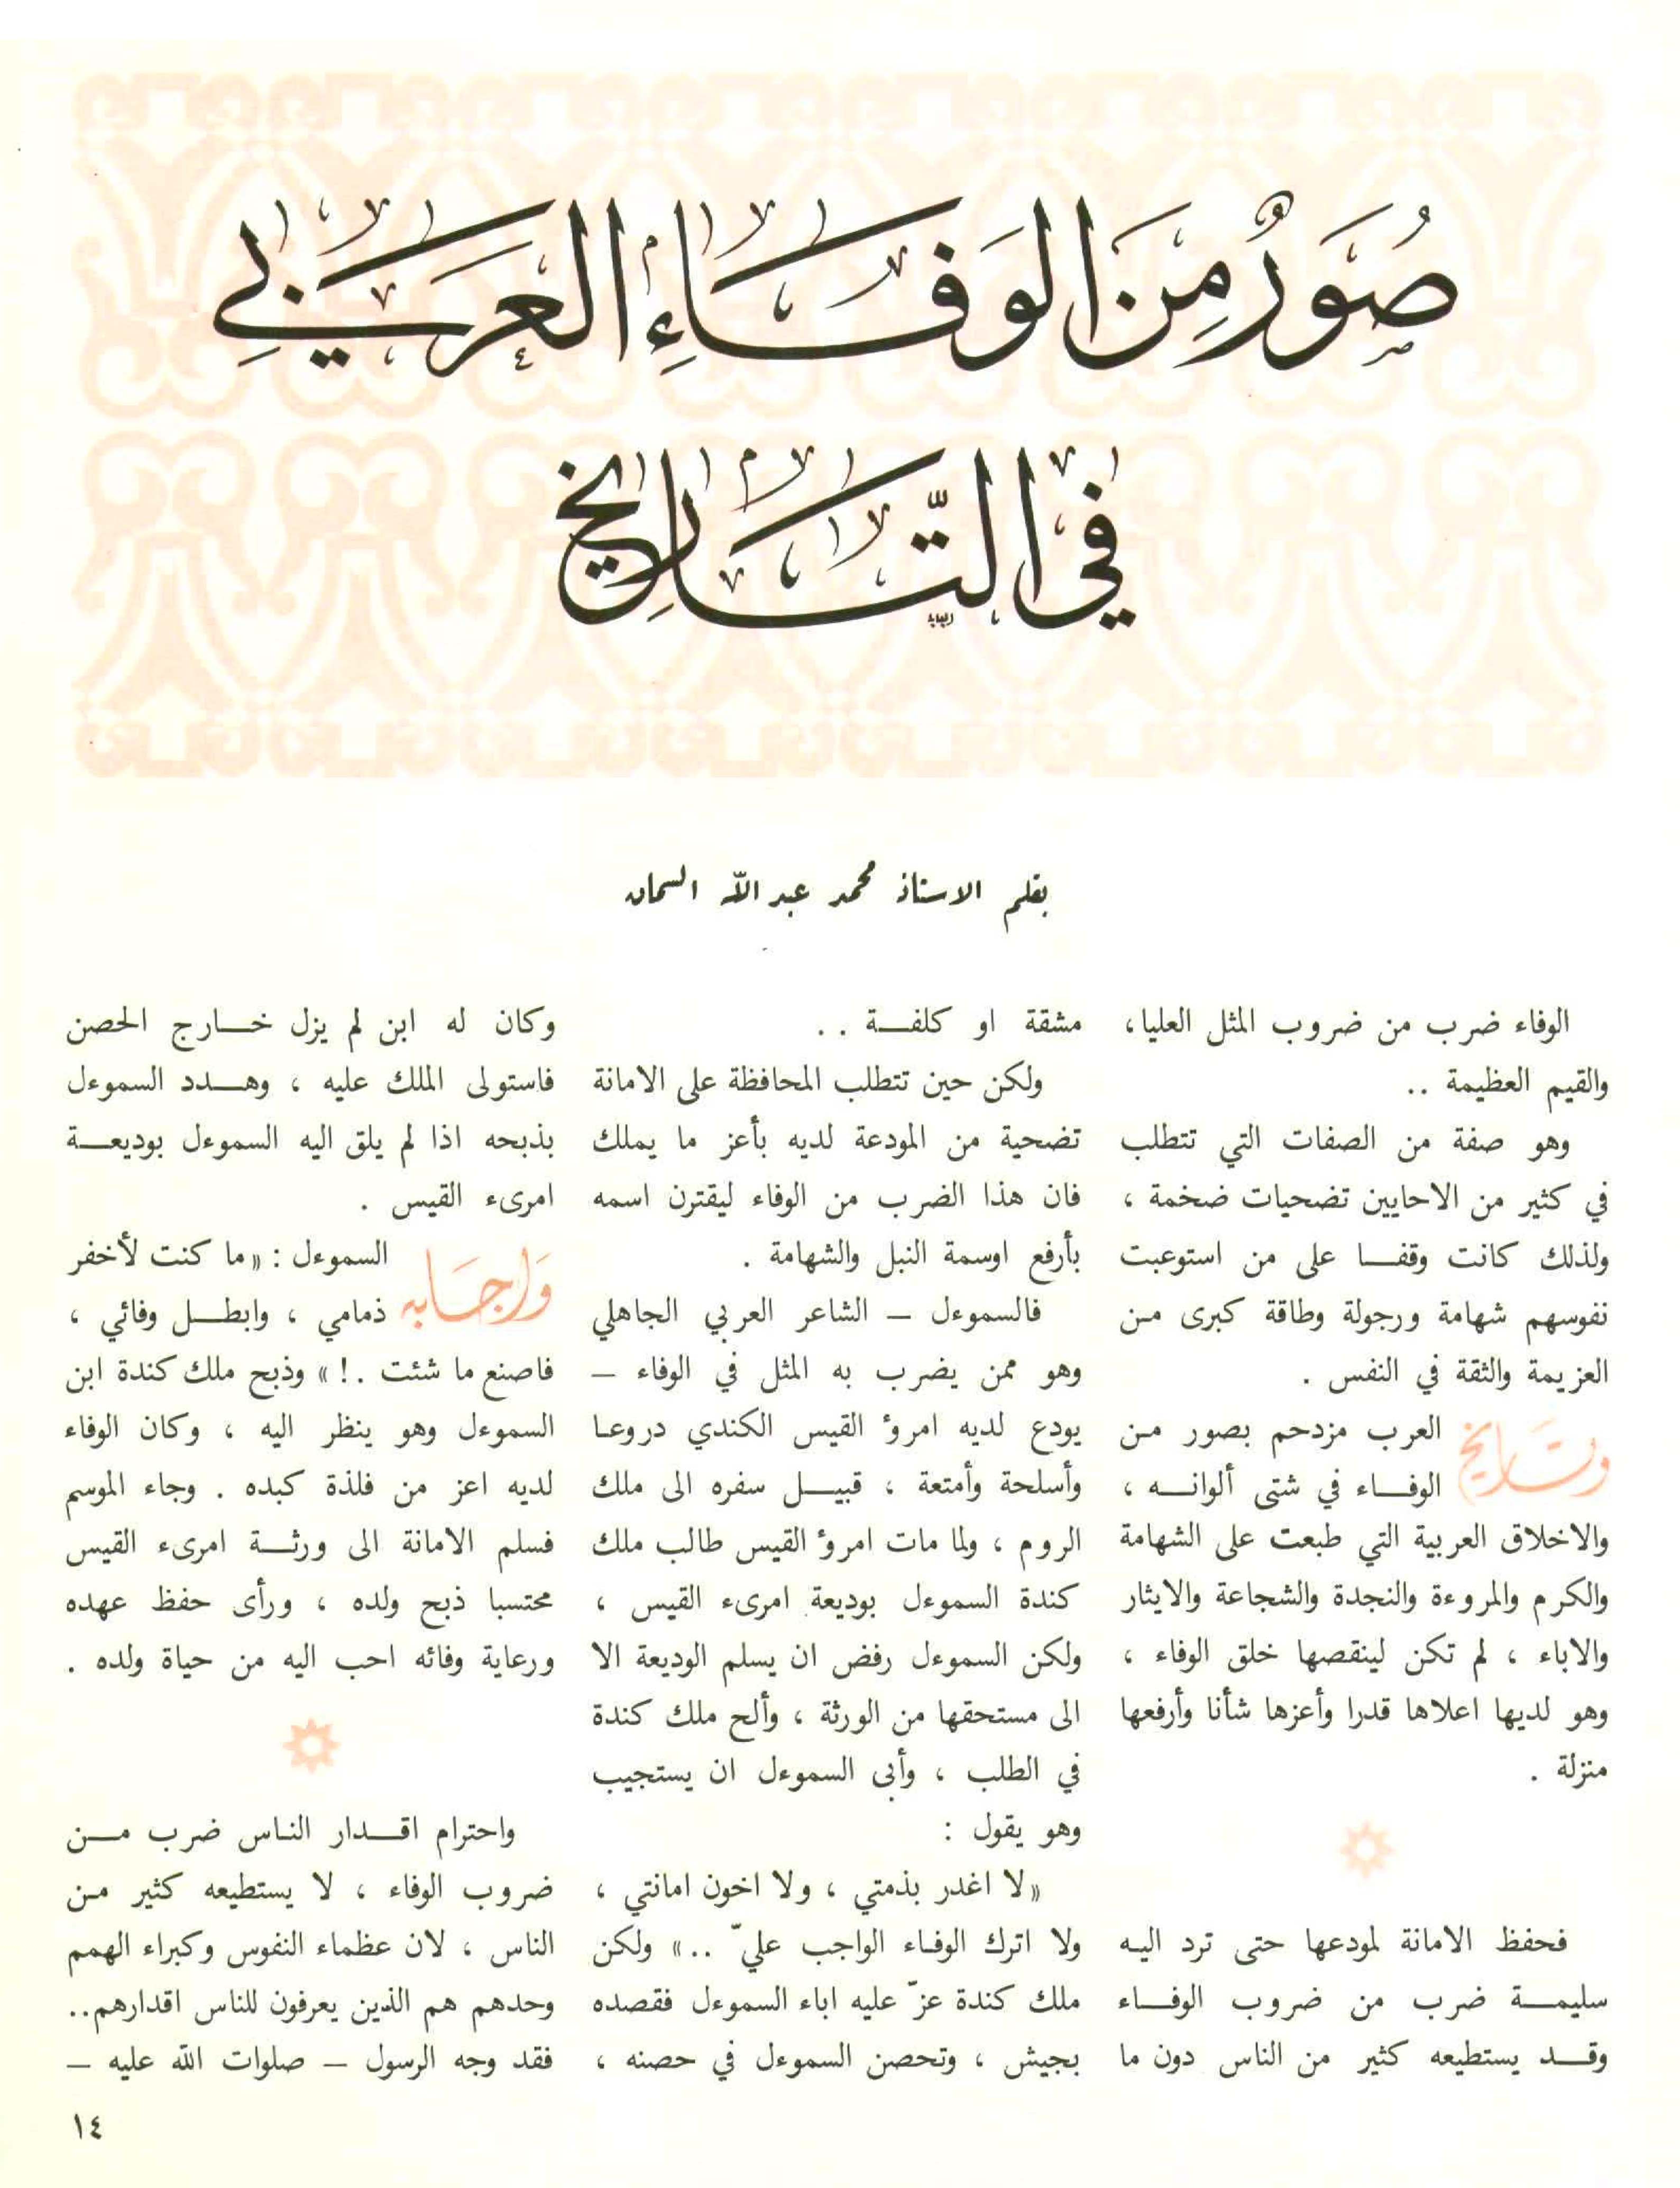 صُوَرٌ مِنَ الوَفَاءِ العَرَبِي
في التَّارِيخ
بقلم الاستاذ محمد عبد الله السمان
الوفاء ضرب من ضروب المثل العليا،
والقيم العظيمة ..
وهو صفة من الصفات التي تتطلب
في كثير من الاحايين تضحيات ضخمة ،
ولذلك كانت وقفـا على من استوعبت
نفوسهم شهامة ورجولة وطاقة كبرى من
العزيمة والثقة في النفس .
وتَاريخ العرب مزدحم بصور من
الوفـاء في شتى ألوانـه ،
والاخلاق العربية التي طبعت على الشهامة
والكرم والمروءة والنجدة والشجاعة والايثار
والاباء ، لم تكن لينقصها خلق الوفاء ،
وهو لديها اعلاها قدرا وأعزها شأنا وأرفعها
منزلة .
فحفظ الامانة لمودعها حتى ترد اليه
سليمـة ضرب من ضروب الوفـاء
وقـد يستطيعه كثير من الناس دون ما
مشقة او كلفـة . .
ولكن حين تتطلب المحافظة على الامانة
تضحية من المودعة لديه بأعز ما يملك
فان هذا الضرب من الوفاء ليقترن اسمه
بأرفع اوسمة النبل والشهامة .
فالسموءل – الشاعر العربي الجاهلي
وهو ممن يضرب به المثل في الوفاء –
يودع لديه امرؤ القيس الكندي دروعا
وأسلحة وأمتعة ، قبيـل سفره الى ملك
الروم ، ولما مات امرؤ القيس طالب ملك
كندة السموءل بوديعة امرىء القيس ،
ولكن السموءل رفض ان يسلم الوديعة الا
الى مستحقها من الورثة ، وألح ملك كندة
في الطلب ، وأبى السموءل ان يستجيب
وهو يقول :
« لا اغدر بذمتي ، ولا اخون امانتي ،
ولا اترك الوفاء الواجب عليّ .. » ولكن
ملك كندة عزّ عليه اباء السموءل فقصده
بجيش ، وتحصن السموءل في حصنه ،
وكان له ابن لم يزل خـارج الحصن
فاستولى الملك عليه ، وهـدد السموءل
بذبحه اذا لم يلق اليه السموءل بوديعـة
امرىء القيس .
وَاجَابه السموءل : « ما كنت لأخفر
ذمامي ، وابطـل وفائي ،
فاصنع ما شئت .! » وذبح ملك كندة ابن
السموءل وهو ينظر اليه ، وكان الوفاء
لديه اعز من فلذة كبده . وجاء الموسم
فسلم الامانة الى ورثـة امرىء القيس
محتسبا ذبح ولده ، ورأى حفظ عهده
ورعاية وفائه احب اليه من حياة ولده .
واحترام اقـدار الناس ضرب مـن
ضروب الوفاء ، لا يستطيعه كثير من
الناس ، لان عظماء النفوس وكبراء الهمم
وحدهم هم الذين يعرفون للناس اقدارهم..
فقد وجه الرسول – صلوات الله عليه –
١٤